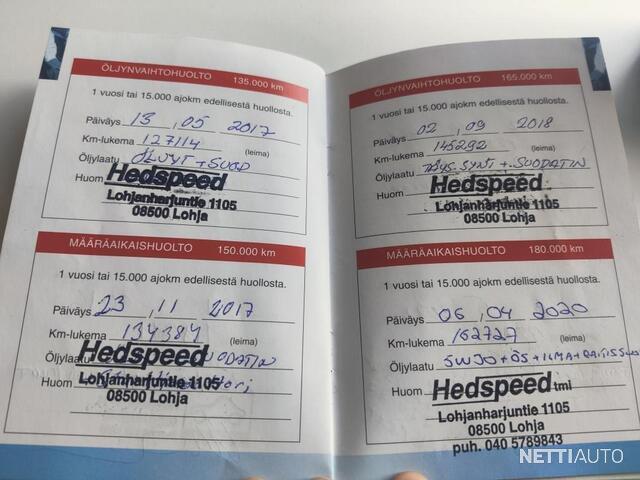 ÖLJYNVAIHTOHUOLTO 135.000 km
1 vuosi tai 15.000 ajokm edellisestä huollosta.
Päiväys 13 . 05 2017
Km-lukema 127114 (leima)
Öljylaatu ÖLJYT + SUOD
Huom Hedspeed
Lohjanharjuntie 1105
08500 Lohja
MÄÄRÄAIKAISHUOLTO 150.000 km
1 vuosi tai 15.000 ajokm edellisestä huollosta.
Päiväys 23 . 11 2017
Km-lukema 134384 (leima)
Öljylaatu
Hedspeed
Huom Lohjanharjuntie 1105
08500 Lohja
ÖLJYNVAIHTOHUOLTO 165.000 km
1 vuosi tai 15.000 ajokm edellisestä huollosta.
Päiväys 02 . 09 2018
Km-lukema 145292 (leima)
Öljylaatu TÄYS.SYNT + SUODATIN
Huom Hedspeed
Lohjanharjuntie 1105
08500 Lohja
MÄÄRÄAIKAISHUOLTO 180.000 km
1 vuosi tai 15.000 ajokm edellisestä huollosta.
Päiväys 06 . 04 2020
Km-lukema 162727 (leima)
Öljylaatu + ÖS + ILMA +
Huom Hedspeed tmi
Lohjanharjuntie 1105
08500 Lohja
puh. 040 5789843
NETTIAUTO